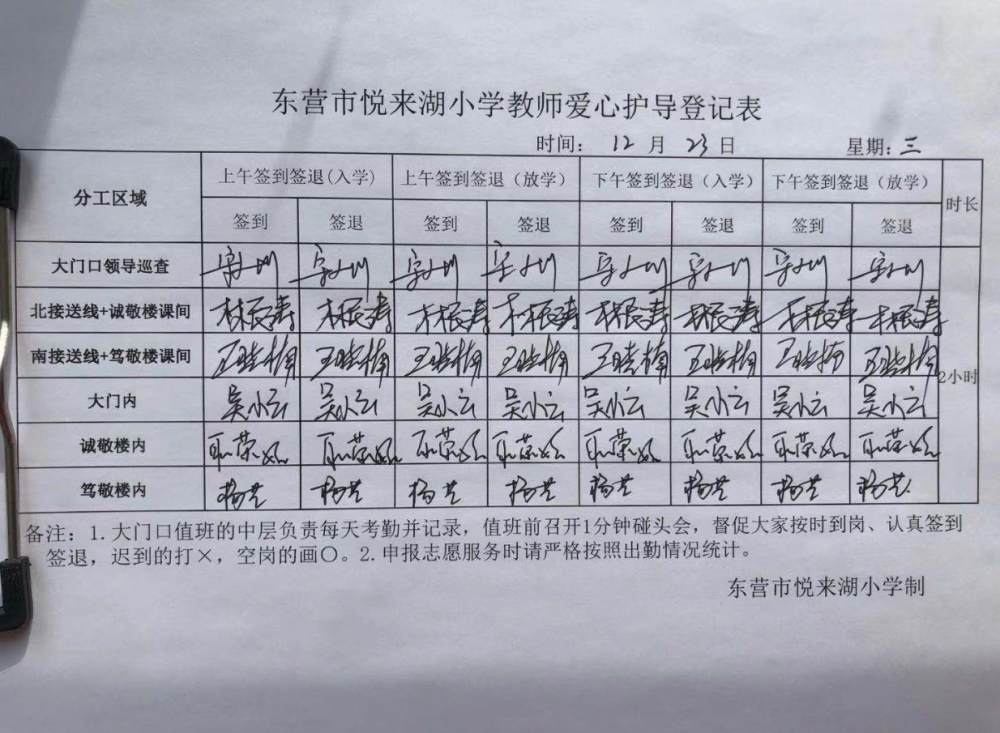 东营市悦来湖小学教师爱心护导登记表
时间： 12 月 23 日 星期：三
分工区域 上午签到签退(入学) 上午签到签退（放学） 下午签到签退（入学） 下午签到签退（放学） 时长
签到 签退 签到 签退 签到 签退 签到 签退
大门口领导巡查
北接送线+诚敬楼课间 林振涛 林振涛 林振涛 林振涛 林振涛 林振涛 林振涛 林振涛
南接送线+笃敬楼课间 王晓楠 王晓楠 王晓楠 王晓楠 王晓楠 王晓楠 王晓楠 王晓楠 2小时
大门内 吴小云 吴小云 吴小云 吴小云 吴小云 吴小云 吴小云 吴小云
诚敬楼内
笃敬楼内 杨芝 杨芝 杨芝 杨芝 杨芝 杨芝 杨芝 杨芝
备注：1.大门口值班的中层负责每天考勤并记录，值班前召开1分钟碰头会，督促大家按时到岗、认真签到
签退，迟到的打×，空岗的画〇。2.申报志愿服务时请严格按照出勤情况统计。
东营市悦来湖小学制